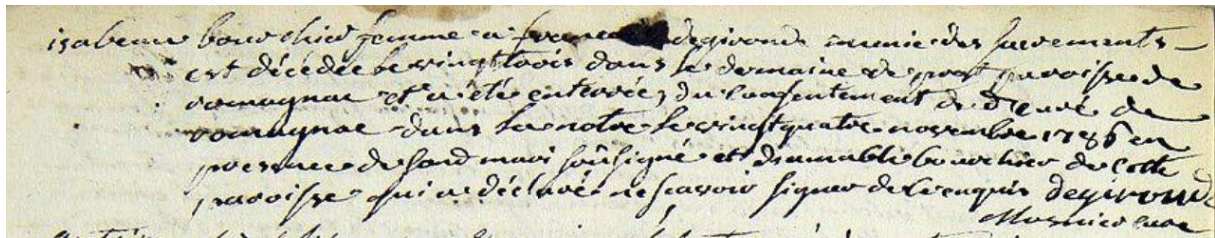 isabeau bouchier femme a françois degironde munie des sacrements
est décédée le vingttrois dans le domaine de port paroisse de
romagnac et a été enterrée, du consentement de mr. curé de
romagnac dans la notre le vingtquatre novembre 1786 en
presence de son mari soûsigné et damable bouchier de cette
paroisse qui a déclaré ne scavoir signer de ce enquis degironde
curé